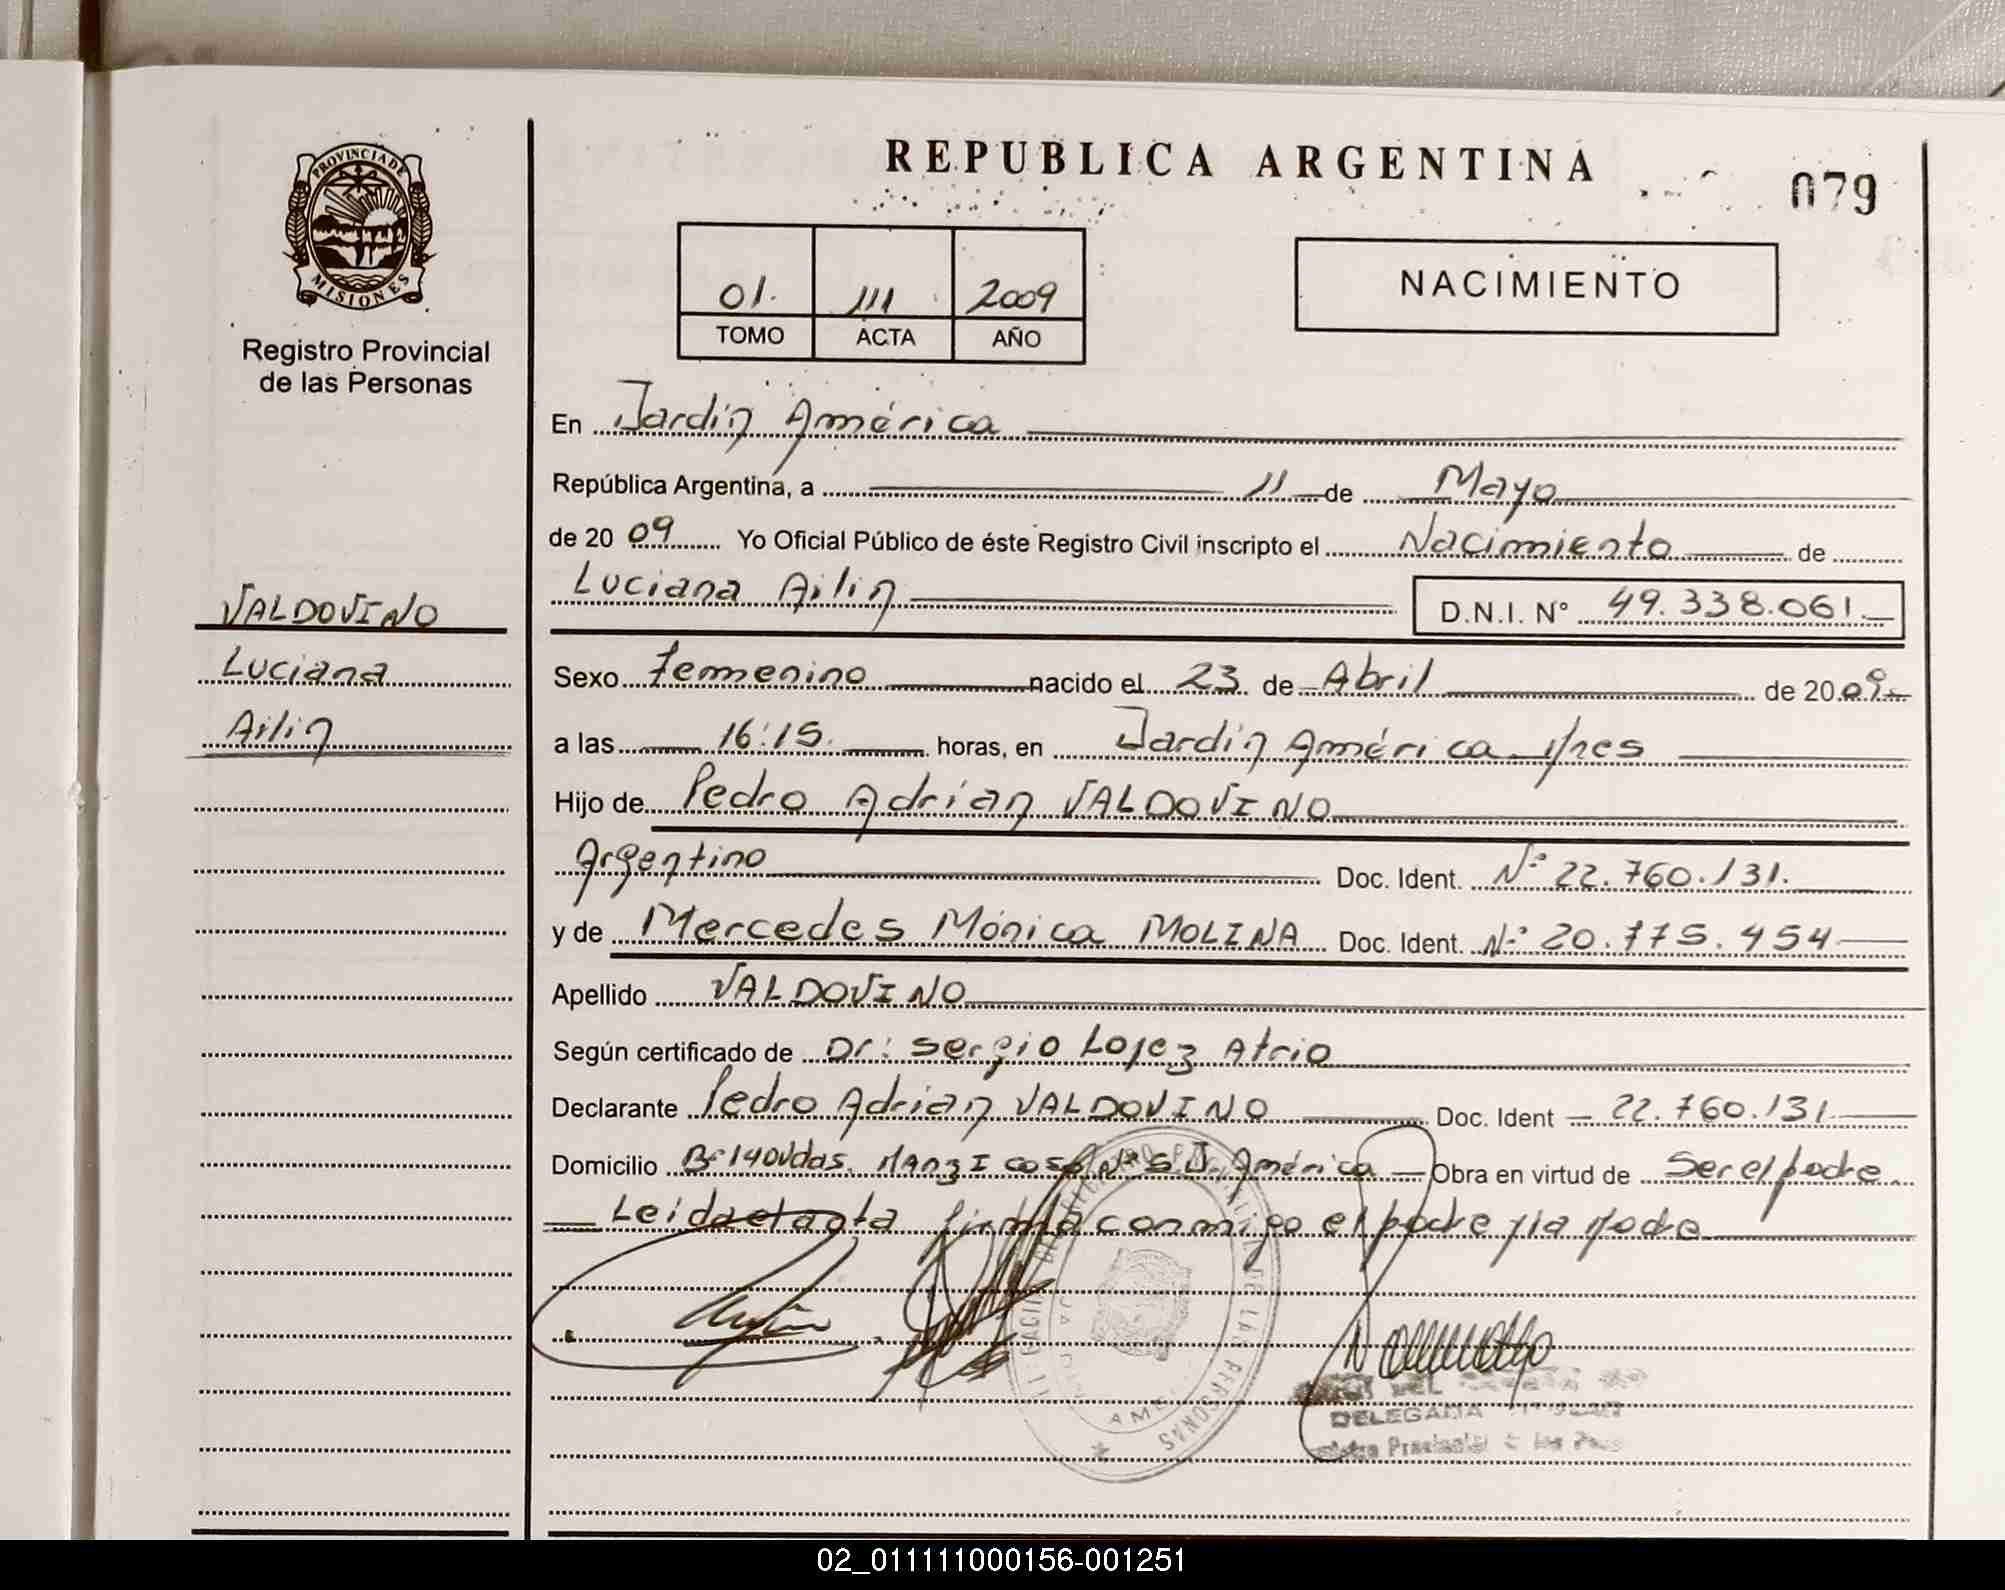 PROVINCIA DE
MISIONES
Registro Provincial
de las Personas
VALDOVINO
Luciana
Ailin
REPUBLICA ARGENTINA
079
01. 111 2009
TOMO ACTA AÑO
NACIMIENTO
En Jardín América
República Argentina, a 11 de Mayo
de 20 09 Yo Oficial Público de éste Registro Civil inscripto el Nacimiento de
Luciana Ailin D.N.I. Nº 49.338.061.
Sexo Femenino nacido el 23 de Abril de 20 09
a las 16:15. horas, en Jardín América
Hijo de Pedro Adrían VALDOVINO
Argentino Doc. Ident. Nº 22.760.131.
y de Mercedes Mónica MOLINA Doc. Ident. Nº 20.775.454
Apellido VALDOVINO
Según certificado de Dr: Sergio Lopez Atrio
Declarante Pedro Adrian VALDOVINO Doc. Ident 22.760.131
Domicilio Bº 140 Vdas. Manz I casa Nº 5 J. América Obra en virtud de Ser el padre
Leida el acta firma conmigo el padre y la madre
DELEGADA
02_011111000156-001251